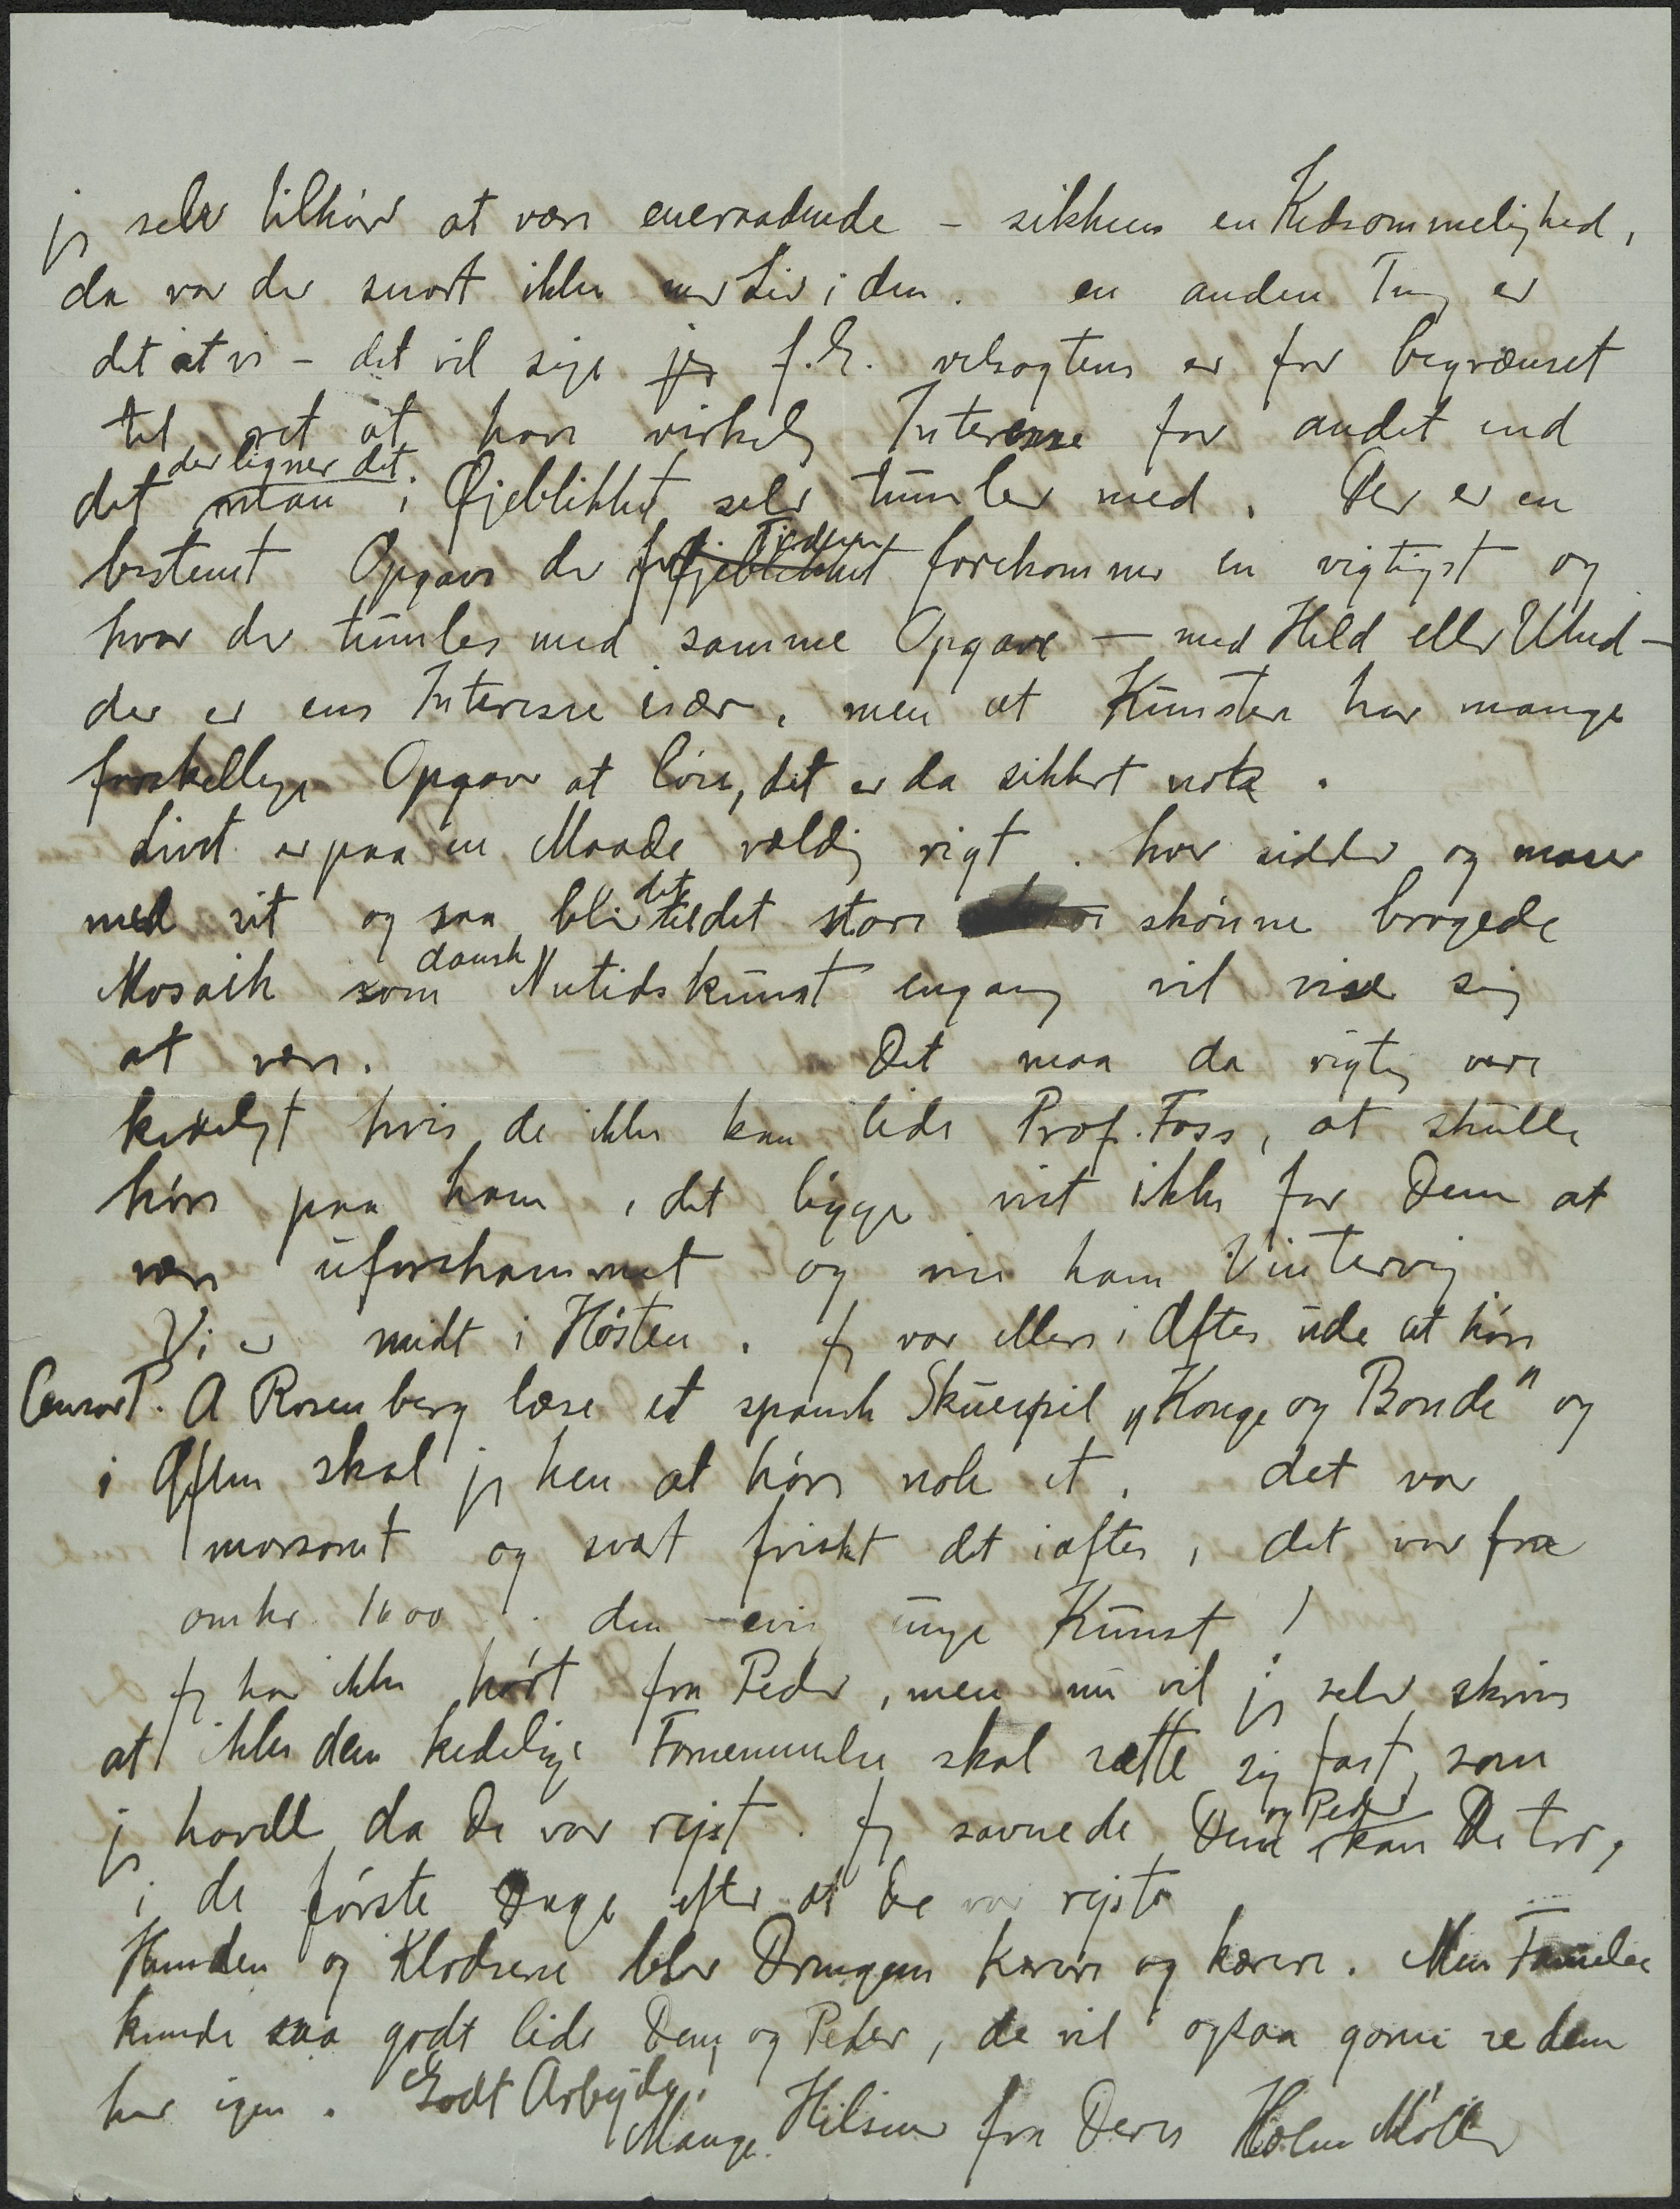 jeg selv tilhører at være eneraadende – sikken en Kedsommelighed,
da var der snart ikke mer Liv i den. en anden Ting er
det at vi – det vil sige jeg f. E. velsagtens er for begrænset
til ret at have virkelig Interesse for andet end
det der ligner det man i Øjeblikket selv tumler med. Der er en
bestemt Opgave der for Øjeblikket Tiden forekommer en vigtigst og
hvor der tumles med samme Opgave – med Held eller Uheld –
der er ens Interesse især, men at Kunsten har mange
forskellige Opgaver at løse, det er da sikkert nok.
Livet er paa en Maade vældig rigt. hver sidder og maser
med sit og saa blir det til det store skønne brogede
Mosaik som dansk Nutidskunst engang vil vise sig
at være. Det maa da rigtig være
kedeligt hvis de ikke kan lide Prof. Foss, at skulle
høre paa ham, det ligger vist ikke for Dem at
være uforskammet og vise ham Vintervej
Vi er midt i Høsten. Jeg var ellers i Aftes ude at høre
Censor P. A Rosenberg læse et spansk Skuespil „Konge og Bonde" og
i Aften skal jeg hen at høre nok et. det var
morsomt og svært friskt det i aftes, det var fra
omkr. 1600. den evig unge Kunst!
Jeg har ikke hørt fra Peder, men nu vil jeg selv skrive
at ikke den kedelige Fornemmelse skal sætte sig fast, som
jeg havde da De var rejst. Jeg savnede Dem og Peder kan De tro,
i de første Dage efter at De var rejste
Hunden og Klodsene blev Drengen kærere og kærere. Min Familie
kunde saa godt lide Dem og Peder, de vil ogsaa gerne se dem
her igen. Godt Arbejde.
Mange Hilsener fra Deres Holm Møller